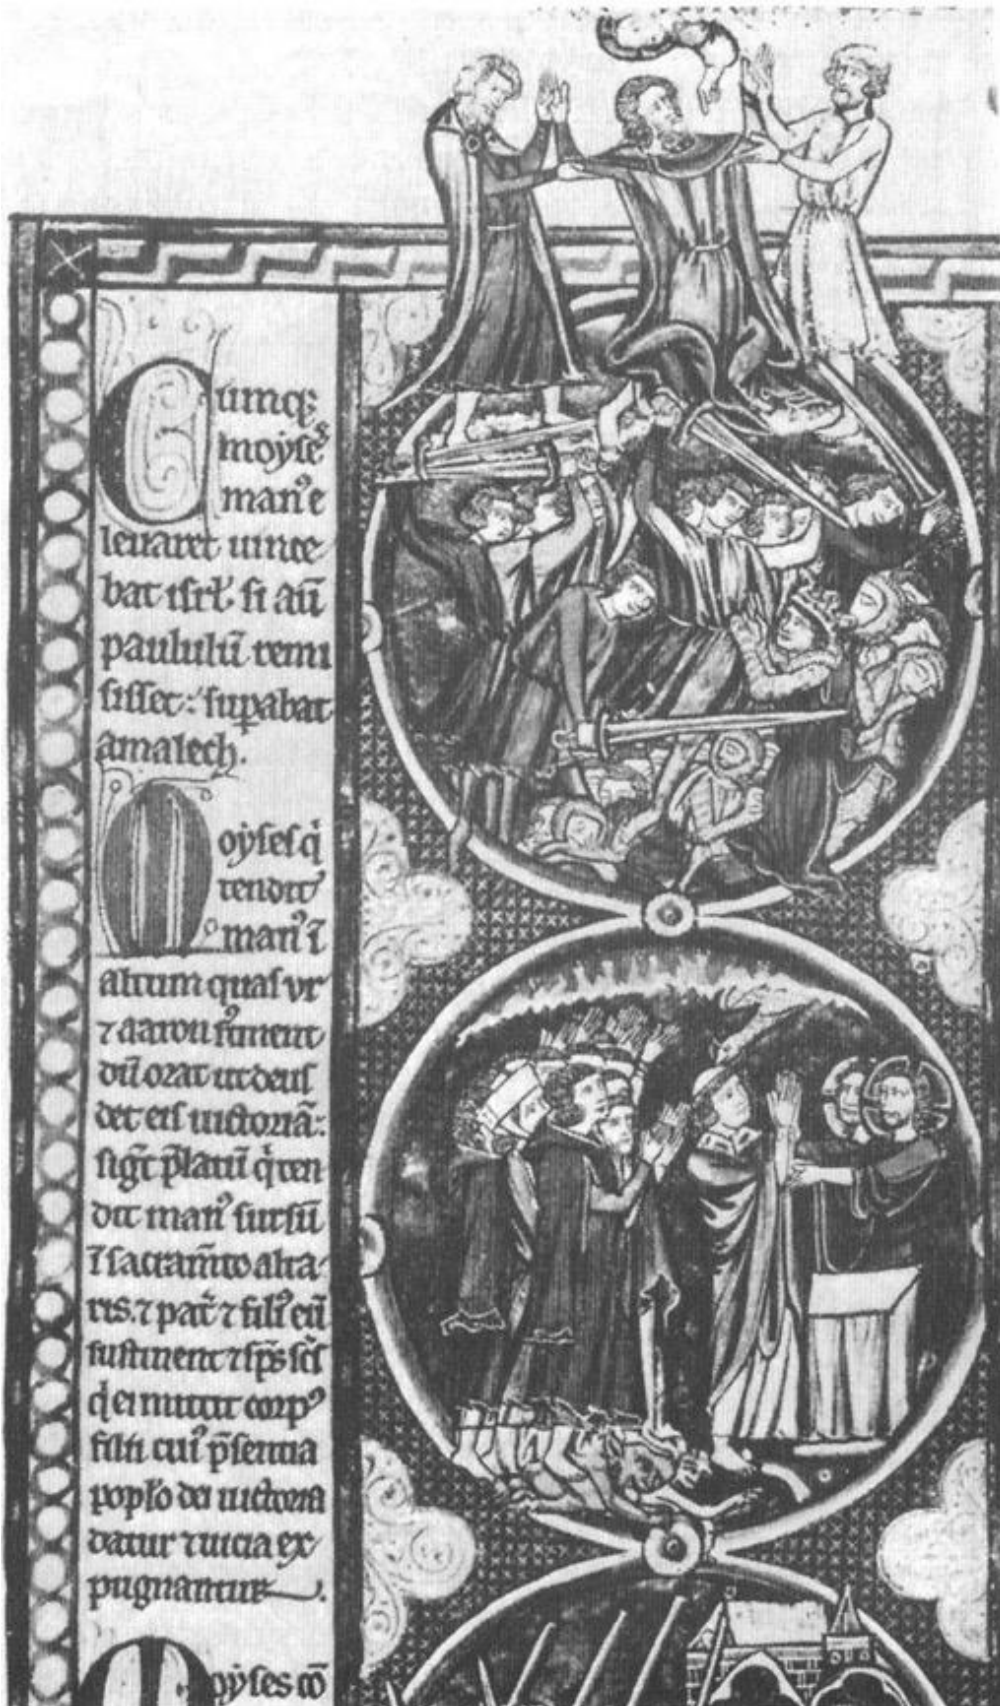 Cumq;
moyses
man᾽ e
leuaret uince
bat isrl̕. si aū
paululū remi
sisset: suꝑabat
amalech.
Moyses q̇
tendit
man᾽ ī
altum quas ur
⁊ aaron sustinent
dū orat ut deus
det eis uictoriā:
sigt̄ p̄latū q̇ ten
dit man᾽ sursū
ī sacram̄to alta
ris. ⁊ pat̄ ⁊ fili᾽ eū
sustinent ⁊ sp̄s sc̄s
q̇ ei mittit corp᾽
filii cui᾽ p̄sentia
popl̕o dei uictoria
datur ⁊ uicia ex
pugnantur.
Moyses cō